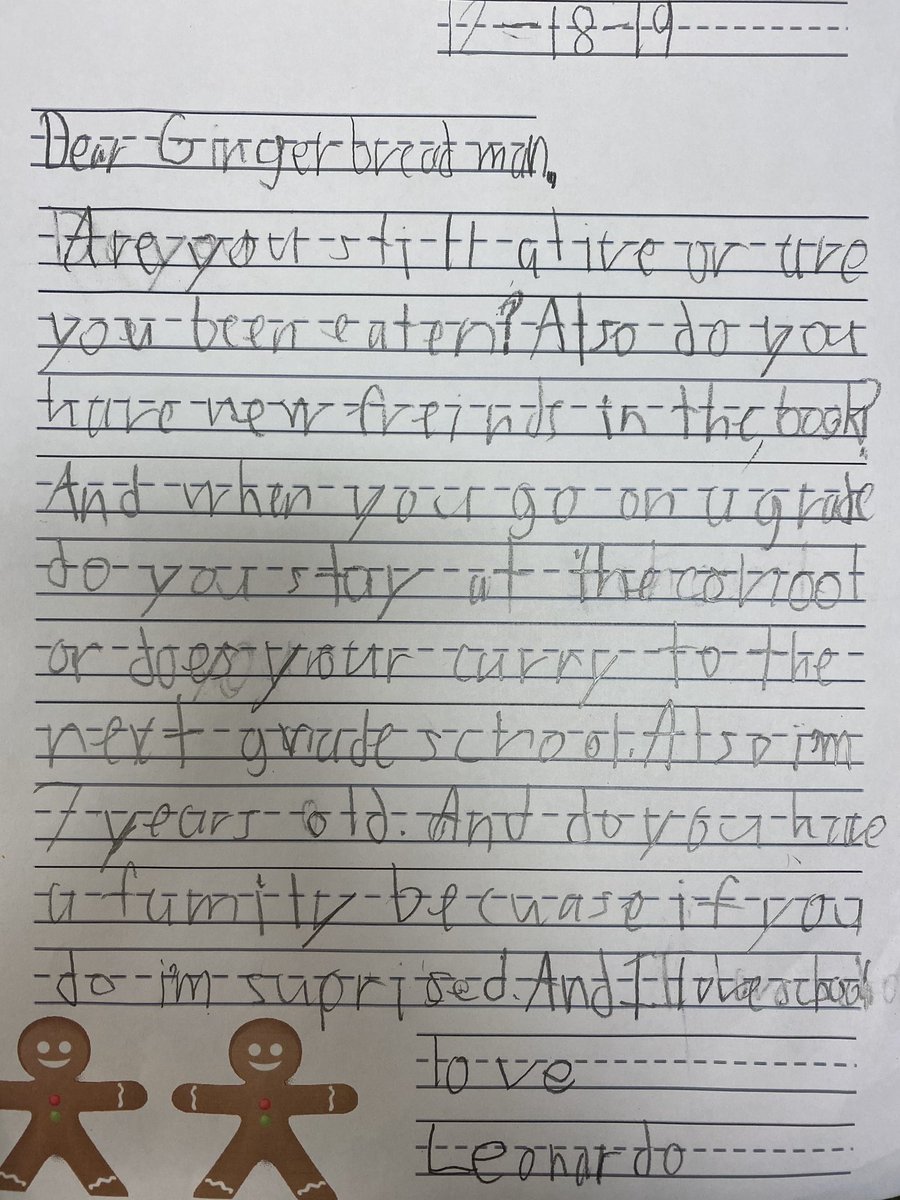 12-18-19
Dear Gingerbread man,
Are you still alive or are
you been eaten? Also do you
have new freinds in the book?
And when you go on a grade
do you stay at the school
or does your carry to the
next grade school. Also im
7 years old. And do you have
a family becuase if you
do im suprised. And I love school
love
Leonardo